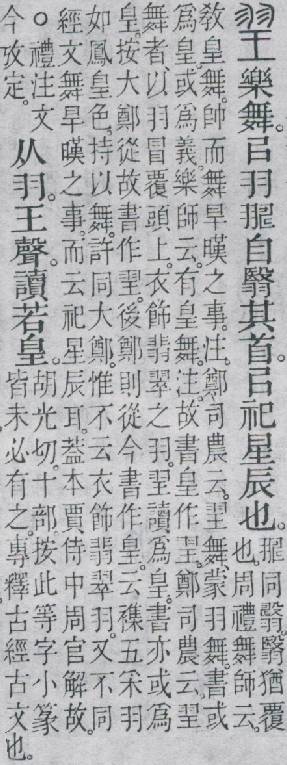 䍿樂舞。㠯羽自翳其首。㠯祀星辰也。
同翳。翳猶覆
也。周禮舞師云。
教皇舞。帥而舞旱暵之事。注。鄭司農云。䍿舞、蒙羽舞。書或
爲皇。或爲義。樂師云。有皇舞。注。故書皇作䍿。鄭司農云。䍿
舞者、以羽冒覆頭上。衣飾翡翠之羽。䍿讀爲皇。書亦或爲
皇。按大鄭從故書作䍿。後鄭則從今書作皇。云襍五采羽
如鳳皇色。持以舞。許同大鄭。惟不云衣飾翡翠羽。又不同
經文舞旱暵之事。而云祀星辰耳。葢本賈侍中周官解故。
○禮注文
今攺定。
从羽。王聲。讀若皇。
胡光切。十部。按此等字小篆
皆未必有之。專釋古經古文也。